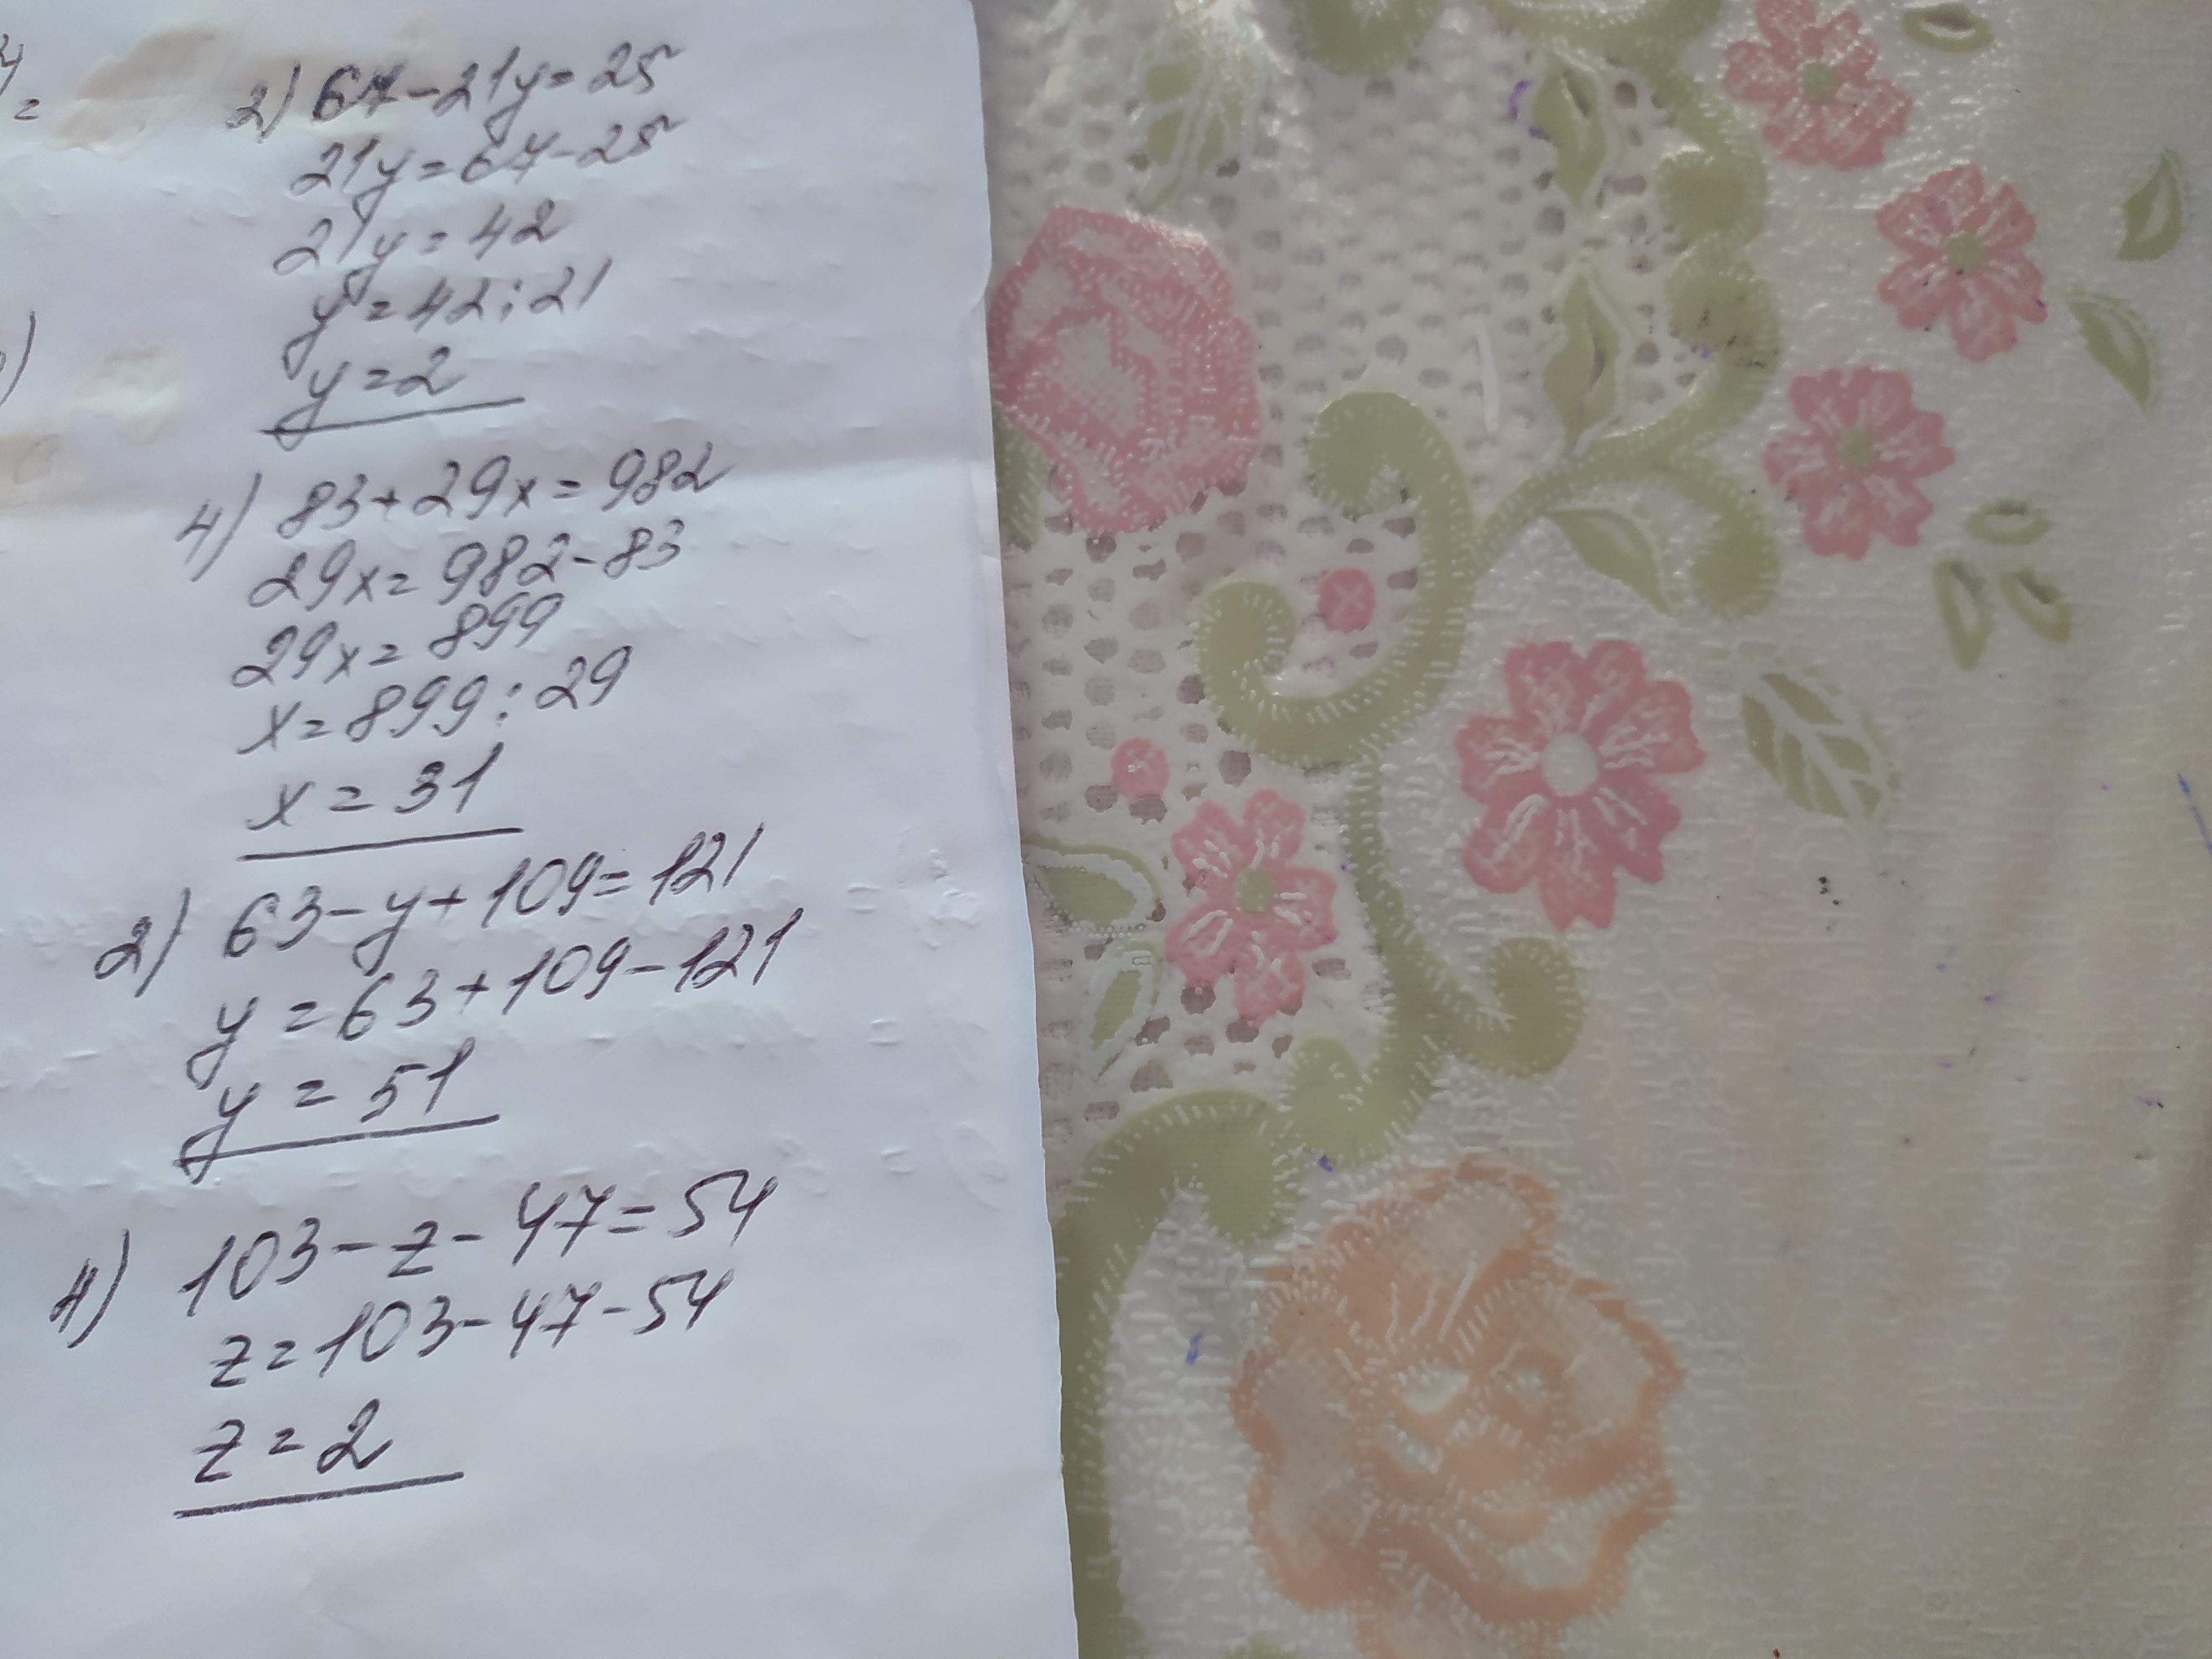 2) 67-21y=25
21y=67-25
21y=42
y=42:21
y=2
4) 83+29x=982
29x=982-83
29x=899
x=899:29
x=31
2) 63-y+109=121
y=63+109-121
y=51
4) 103-z-47=54
z=103-47-54
z=2